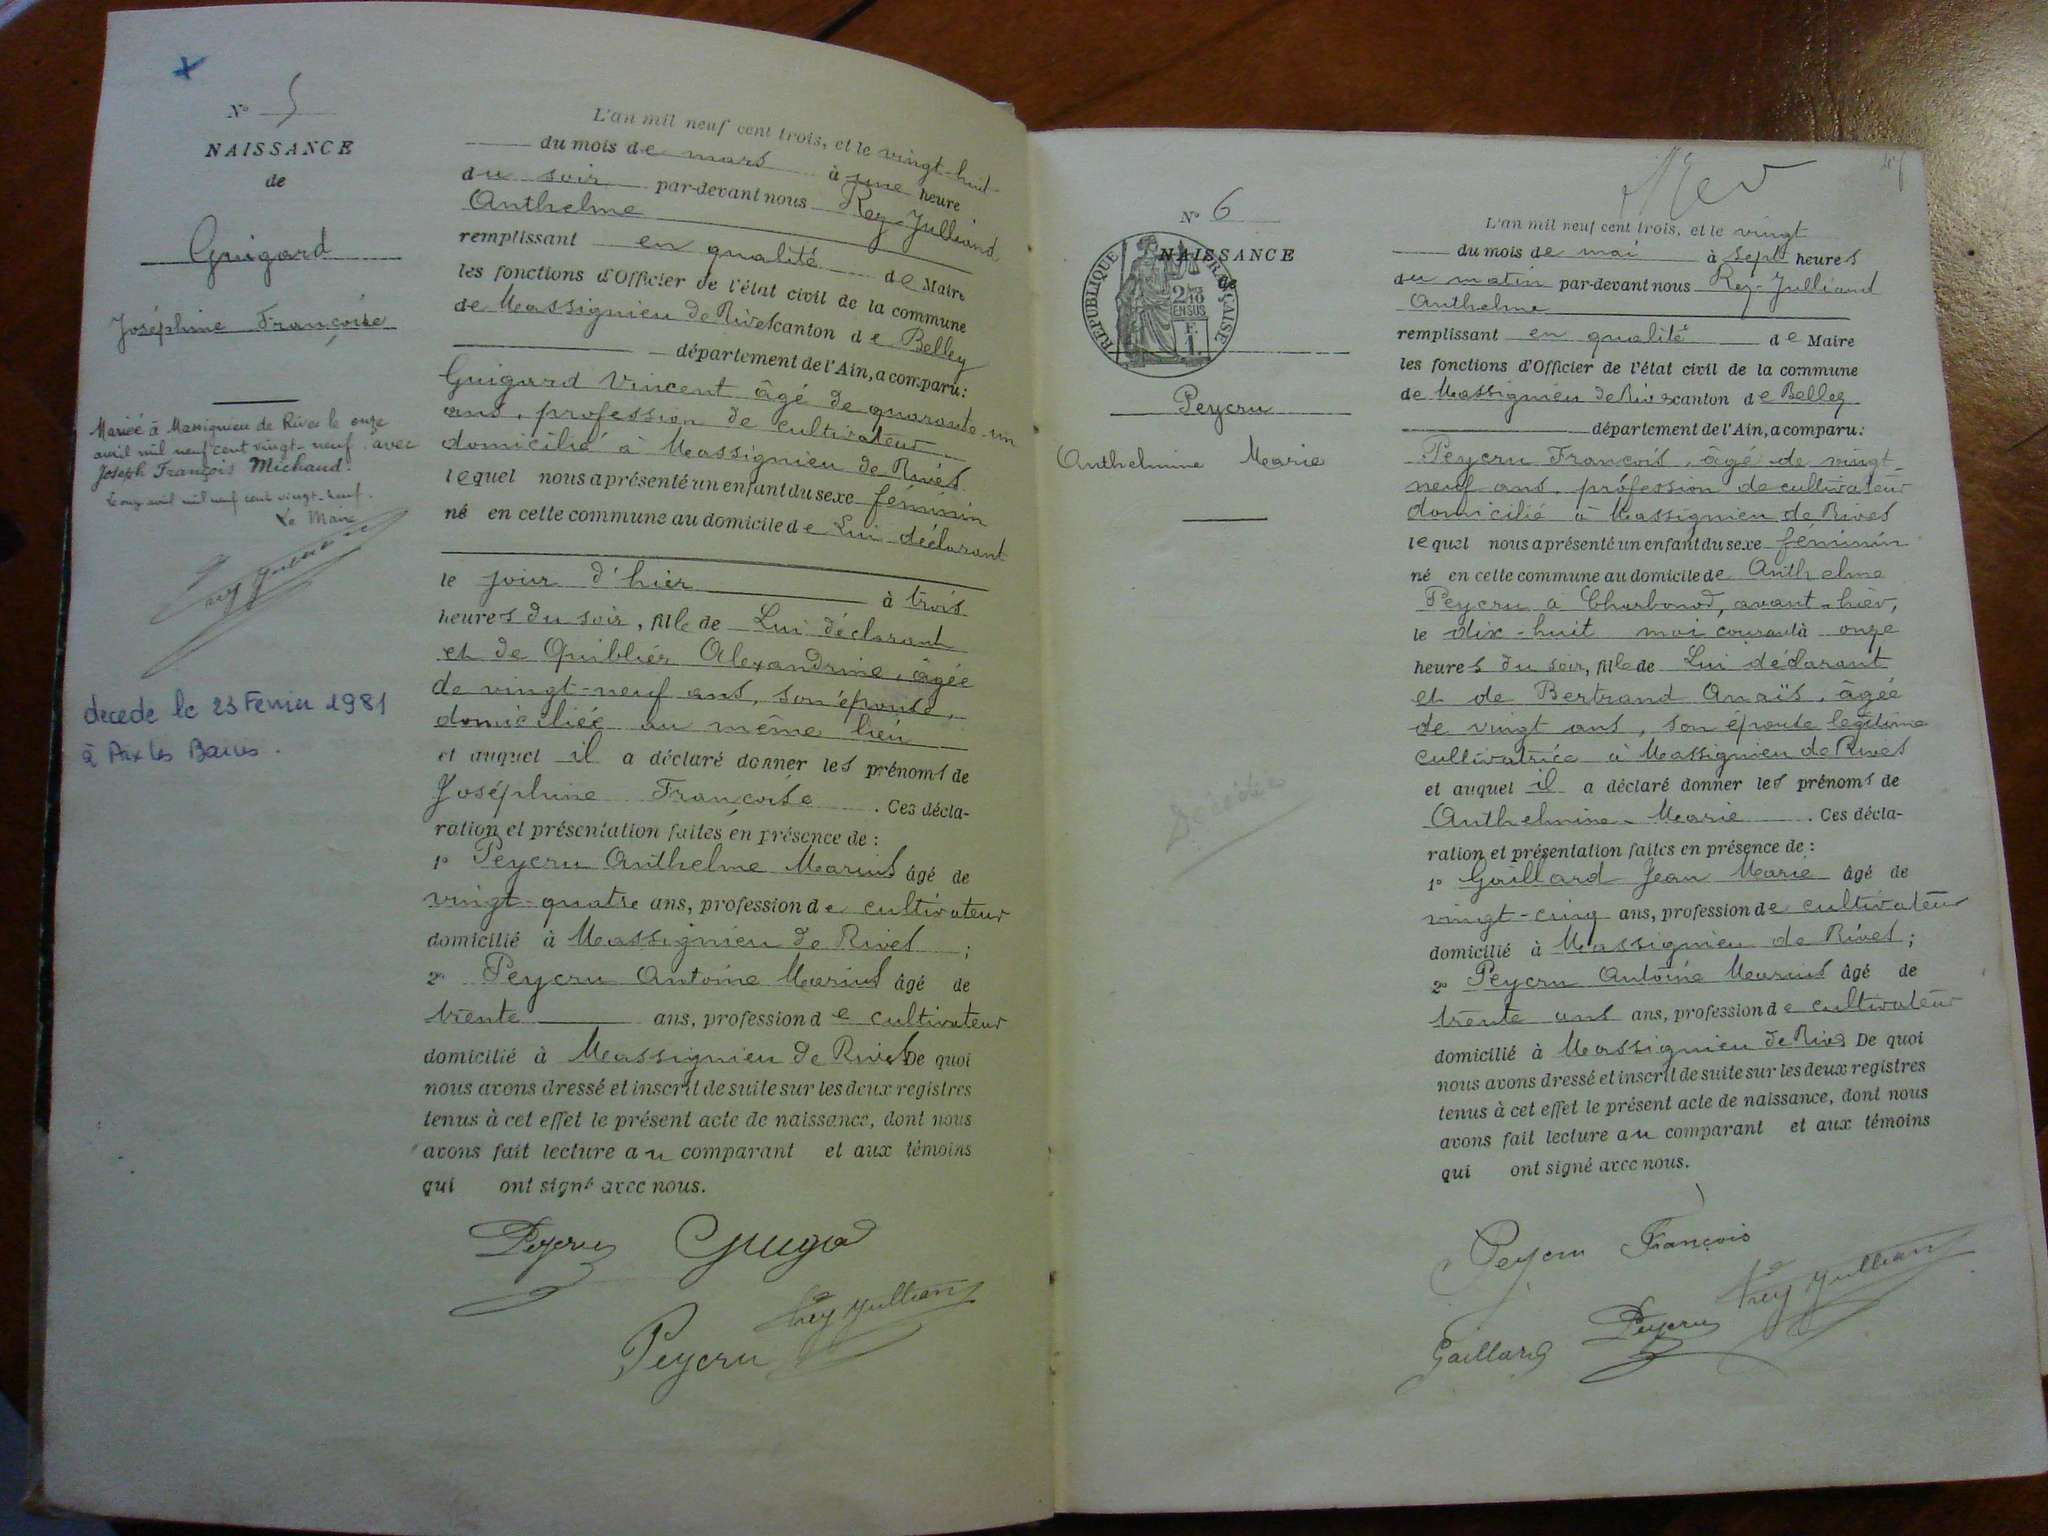 N° 5
NAISSANCE
de
Guigard
Joséphine Françoise
Mariée à Massignieu de Rives le onze
avril mil neuf cent vingt-neuf avec
Joseph François Michaud.
Le onze avril mil neuf cent vingt-neuf.
Le Maire
decede le 23 Fevrier 1981
à Aix les Bains.
L'an mil neuf cent trois, et le vingt-huit
du mois de mars à une heure
du soir par-devant nous Rey-Julliand
Anthelme
remplissant en qualité de Maire
les fonctions d'Officier de l'état civil de la commune
de Massignieu de Rives canton de Belley
département de l'Ain, a comparu:
Guigard Vincent âgé de quarante-un
ans, profession de cultivateur
domicilié à Massignieu de Rives
lequel nous a présenté un enfant du sexe féminin
né en cette commune au domicile de Lui déclarant
le jour d'hier à trois
heures du soir, fille de Lui déclarant
et de Quiblier Alexandrine, âgée
de vingt-neuf ans, son épouse,
domiciliée au même lieu
et auquel il a déclaré donner les prénoms de
Joséphine Françoise. Ces décla-
ration et présentation faites en présence de :
1° Peycru Anthelme Marius âgé de
vingt-quatre ans, profession de cultivateur
domicilié à Massignieu de Rives ;
2° Peycru Antoine Marius âgé de
trente ans, profession de cultivateur
domicilié à Massignieu de Rives De quoi
nous avons dressé et inscrit de suite sur les deux registres
tenus à cet effet le présent acte de naissance, dont nous
avons fait lecture au comparant et aux témoins
qui ont signé avec nous.
Peycru Guigard
Rey Julliand
Peycru
N° 6
NAISSANCE
de
RÉPUBLIQUE FRANÇAISE
2/10
EN SUS
Peycru
Anthelmine Marie
Décédée
L'an mil neuf cent trois, et le vingt
du mois de mai à sept heures
du matin par-devant nous Rey-Julliand
Anthelme
remplissant en qualité de Maire
les fonctions d'Officier de l'état civil de la commune
de Massignieu de Rives canton de Belley
département de l'Ain, a comparu:
Peycru François, âgé de vingt-
neuf ans, profession de cultivateur
domicilié à Massignieu de Rives
lequel nous a présenté un enfant du sexe féminin
né en cette commune au domicile de Anthelme
Peycru à Charbonod, avant-hier,
le dix-huit mai courant à onze
heures du soir, fille de Lui déclarant
et de Bertrand Anaïs, âgée
de vingt ans, son épouse légitime
cultivatrice à Massignieu de Rives
et auquel il a déclaré donner les prénoms de
Anthelmine-Marie. Ces décla-
ration et présentation faites en présence de :
1° Gaillard Jean Marie âgé de
vingt-cinq ans, profession de cultivateur
domicilié à Massignieu de Rives ;
2° Peycru Antoine Marius âgé de
trente ans ans, profession de cultivateur
domicilié à Massignieu de Rives De quoi
nous avons dressé et inscrit de suite sur les deux registres
tenus à cet effet le présent acte de naissance, dont nous
avons fait lecture au comparant et aux témoins
qui ont signé avec nous.
Peycru François
Rey Julliand
Gaillard Peycru